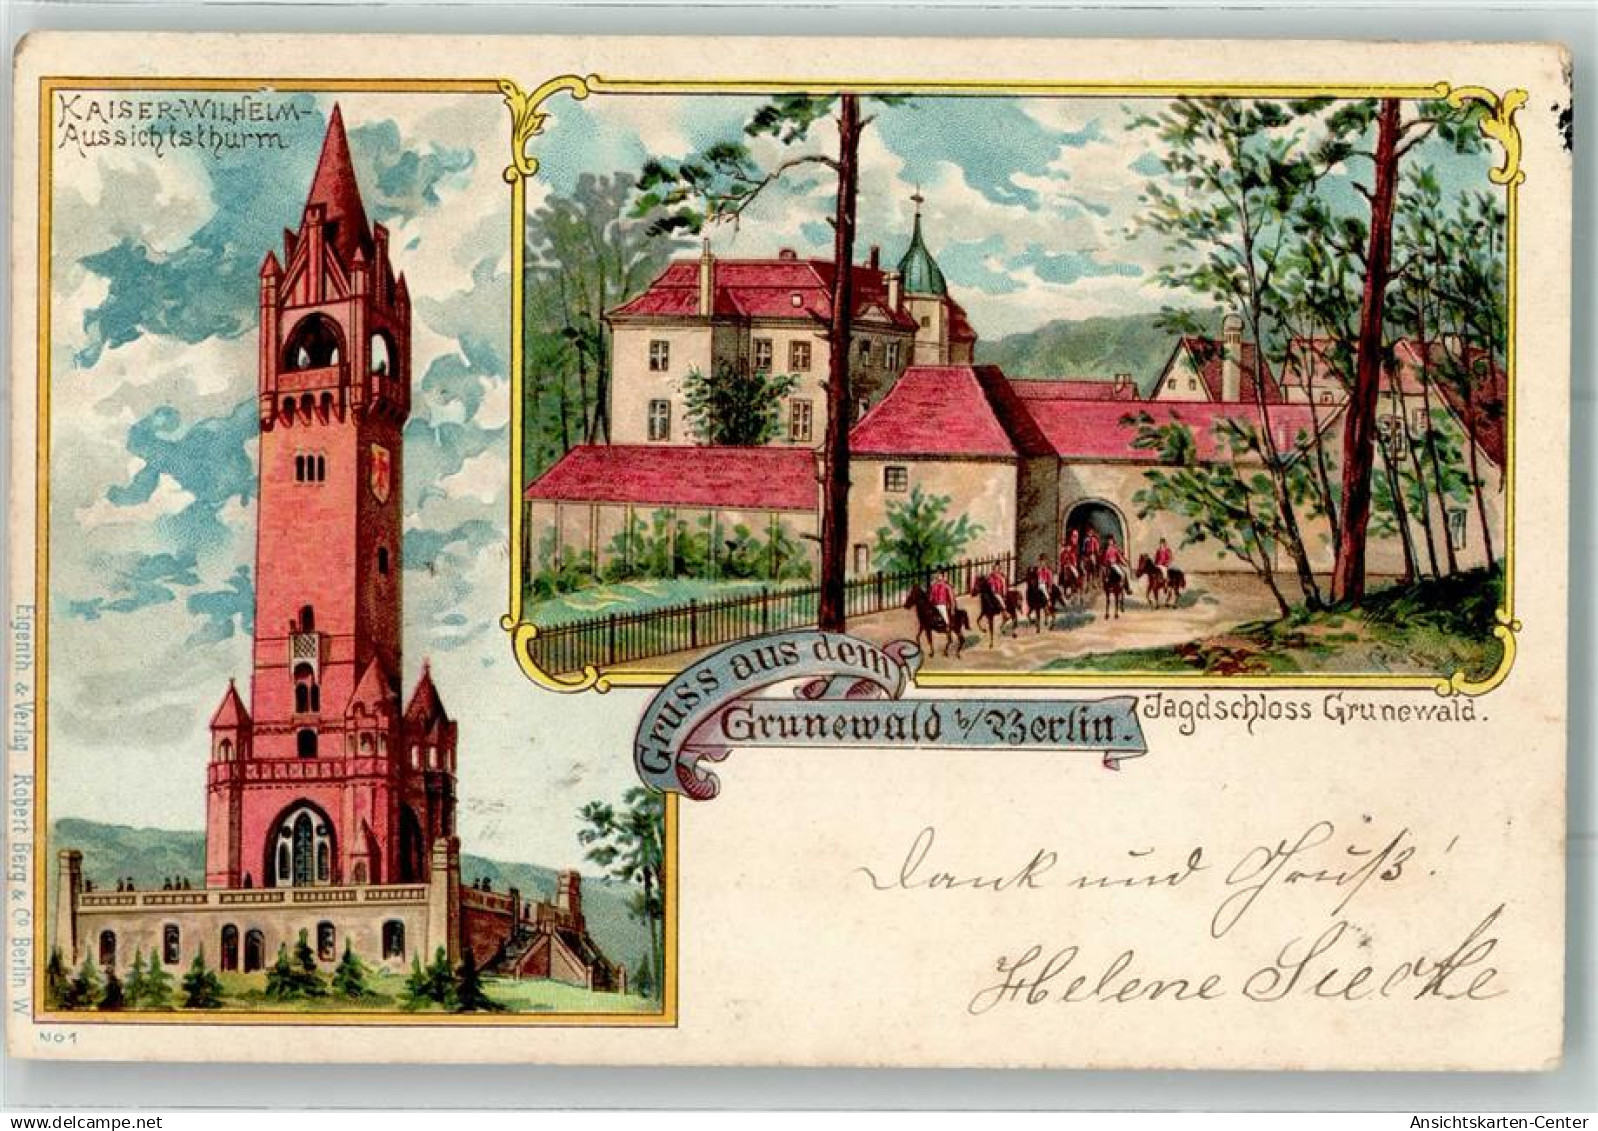 KAISER-WILHELM-
Aussichtsthurm
Gruss aus dem
Grunewald b/Berlin.
Jagdschloss Grunewald.
Dank und Gruß!
Helene Siecke
Eigenth. & Verlag Robert Berg & Co Berlin W
No 1
akpool.de
Ansichtskarten-Center